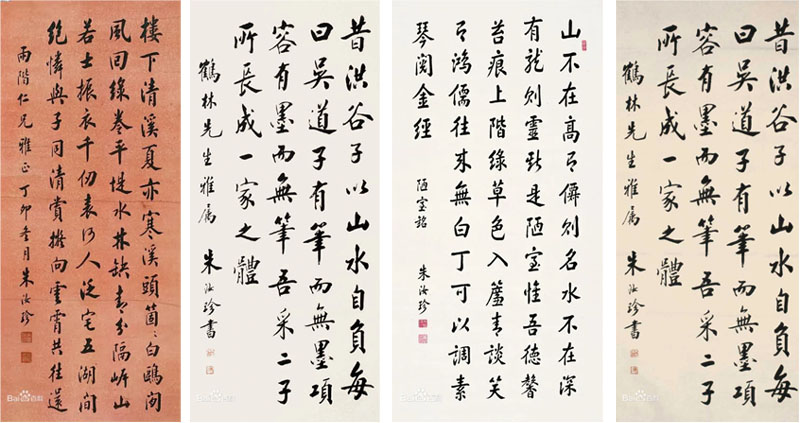 樓下清溪夏亦寒溪頭箇〻白鷗閒
風回綠卷平堤水林缺青分隔岸山
若士振衣千仞表何人泛宅五湖間
絕憐與子同清賞擬向雲霄共往還
雨階仁兄雅正 丁卯冬月 朱汝珍
Bai百科
昔洪谷子以山水自負每
曰吳道子有筆而無墨項
容有墨而無筆吾采二子
所長成一家之體
鶴林先生雅屬 朱汝珍書
Bai百科
山不在高有僊則名水不在深
有龍則靈斯是陋室惟吾德馨
苔痕上階綠草色入簾青談笑
有鴻儒往來無白丁可以調素
琴閱金經 陋室銘 朱汝珍
昔洪谷子以山水自負每
曰吳道子有筆而無墨項
容有墨而無筆吾采二子
所長成一家之體
鶴林先生雅屬 朱汝珍書
Bai百科